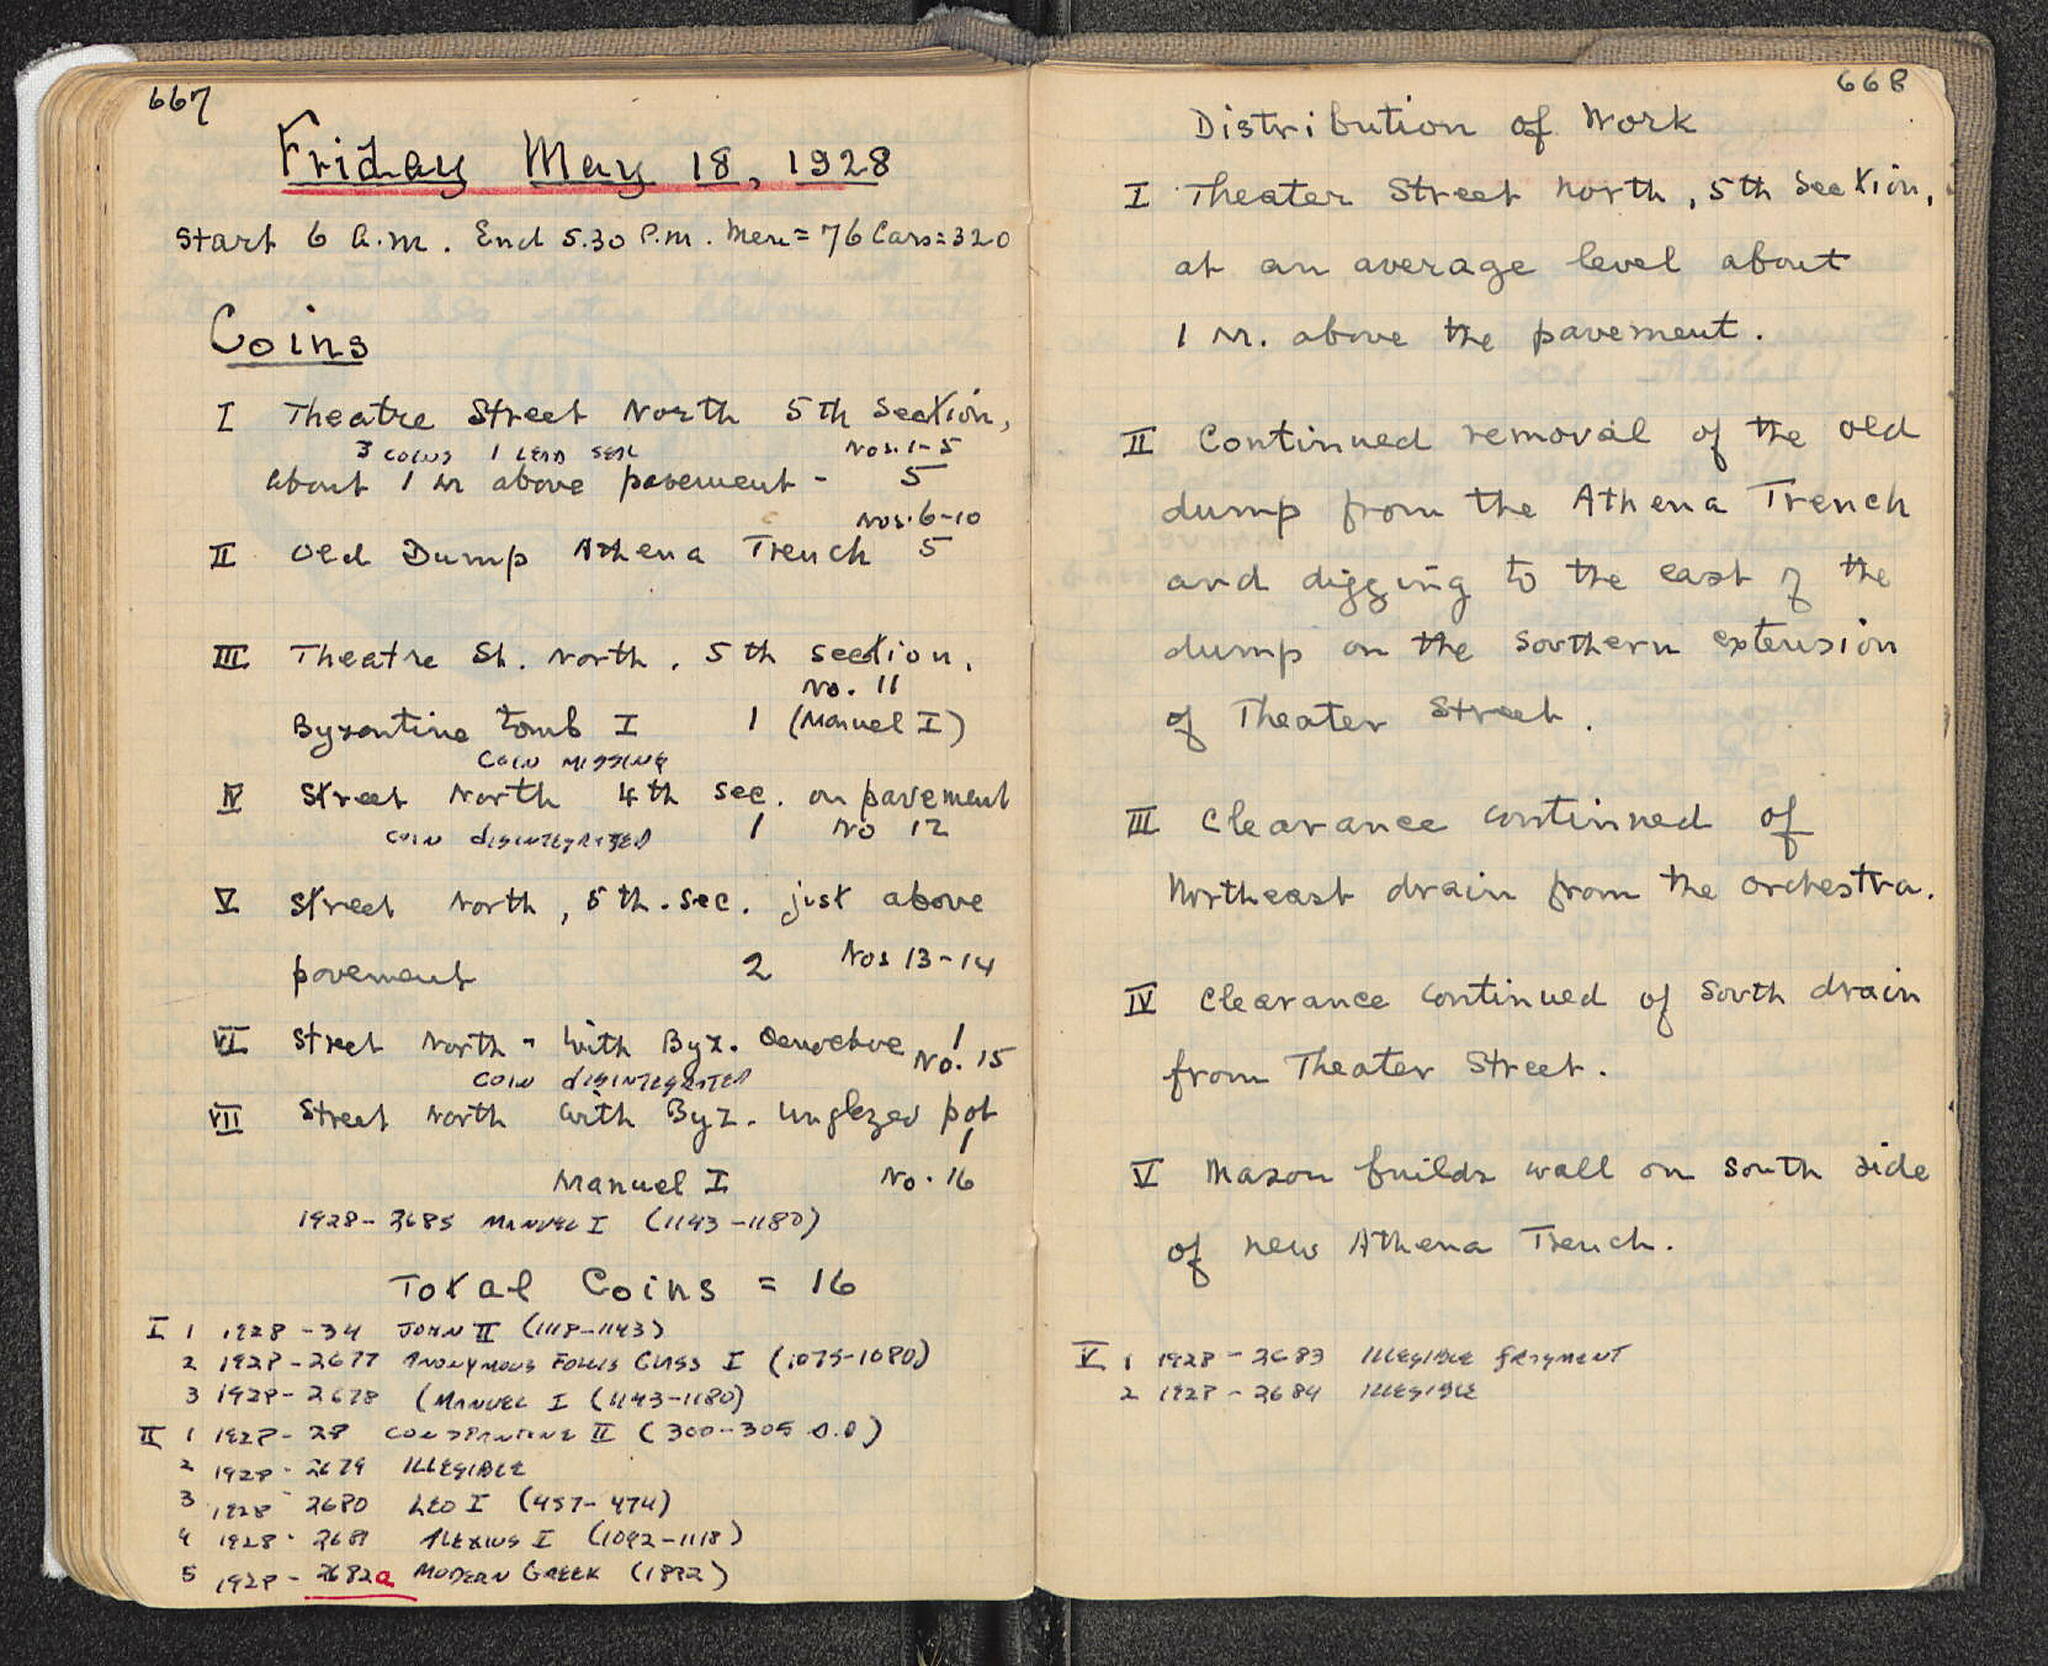 667
Friday May 18, 1928
Start 6 A.M. End 5.30 P.M. Men = 76 Cars = 320
Coins
I Theatre Street North 5th Section,
3 COINS 1 LEAD SEAL Nos. 1-5
about 1 M above pavement - 5
Nos. 6-10
II Old Dump Athena Trench 5
III Theatre St. North, 5th section,
No. 11
Byzantine tomb I 1 (Manuel I)
COIN MISSING
IV Street North 4th sec. on pavement
COIN DISINTEGRATED 1 No 12
V Street North, 5th. sec. just above
pavement 2 Nos 13-14
VI Street North - with Byz. 1
No. 15
COIN DISINTEGRATED
VII Street North with Byz. unglazed pot
1
Manuel I No. 16
1928-2685 MANUEL I (1143-1180)
Total Coins = 16
I 1 1928-34 JOHN II (1118-1143)
2 1928-2677 ANONYMOUS FOLLIS CLASS I (1075-1080)
3 1928-2678 (MANUEL I (1143-1180)
II 1 1928-28 CONSTANTINE II (300-305 A.D)
2 1928-2679 ILLEGIBLE
3 1928-2680 LEO I (457-474)
4 1928-2681 ALEXIUS I (1092-1118)
5 1928-2682a MODERN GREEK (1882)
668
Distribution of Work
I Theater Street North, 5th Section,
at an average level about
1 M. above the pavement.
II Continued removal of the old
dump from the Athena Trench
and digging to the east of the
dump on the southern extension
of Theater Street.
III Clearance continued of
Northeast drain from the orchestra.
IV Clearance continued of South drain
from Theater Street.
V Mason builds wall on south side
of new Athena Trench.
V 1 1928-2683 ILLEGIBLE FRAGMENT
2 1928-2684 ILLEGIBLE